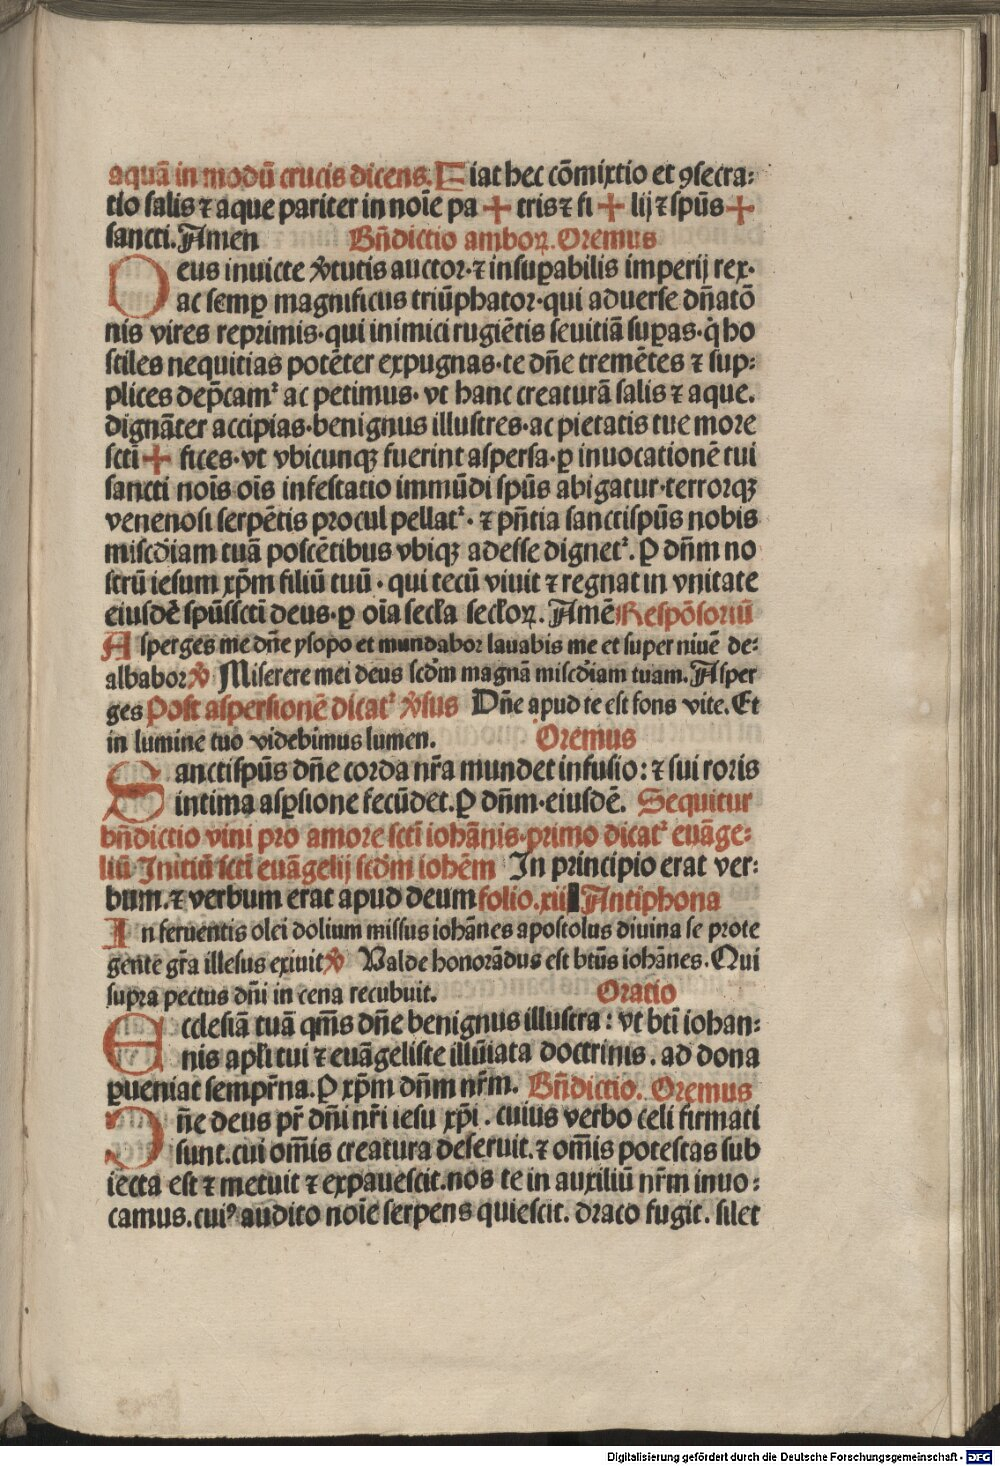 aquā in modū crucis dicens. Fiat hec cōmixtio et ꝯsecra⸗
tio salis ⁊ aque pariter in noīe pa ✚ tris ⁊ fi ✚ lij ⁊ spūs ✚
sancti. Amen Bn̄dictio amboꝝ. Oremus
Deus inuicte v̓tutis auctor· ⁊ insuꝑabilis imperij rex·
ac semꝑ magnificus triūphator· qui aduerse dn̄atō
nis vires reprimis· qui inimici rugiētis seuitiā suꝑas· q̇ ho
stiles nequitias potēter expugnas· te dn̄e tremētes ⁊ sup⸗
plices dep̄cam᷒ ac petimus· vt hanc creaturā salis ⁊ aque.
dignāter accipias· benignus illustres· ac pietatis tue more
sctī ✚ fices· vt vbicunqꝫ fuerint aspersa· ꝑ inuocationē tui
sancti noīs oīs infestatio immūdi spūs abigatur· terrorqꝫ
venenosi serpētis procul pellat᷒· ⁊ pn̄tia sanctispūs nobis
misc̄diam tuā poscētibus vbiqꝫ adesse dignet᷒. Ꝑ dn̄m no
strū iesum xp̄m filiū tuū · qui tecū viuit ⁊ regnat in vnitate
eiusdē spūssctī deus· ꝑ oīa secl̄a secl̄oꝝ. Amē Respōsoriū
Asperges me dn̄e ysopo et mundabor lauabis me et super niuē de⸗
albabor ℣ Miserere mei deus scd̄m magnā misc̄diam tuam. Asper
ges Post aspersionē dicat᷒ v̓sus Dn̄e apud te est fons vite. Et
in lumine tuo videbimus lumen. Oremus
Sanctispūs dn̄e corda nr̄a mundet infusio: ⁊ sui roris
intima asꝑsione fecūdet. Ꝑ dn̄m· eiusdē. Sequitur
bn̄dictio vini pro amore sctī iohānis· primo dicat᷒ euāge⸗
liū Initiū sctī euāgelij scd̄m iohēm In principio erat ver⸗
bum. ⁊ verbum erat apud deum folio. xii Antiphona
In feruentis olei dolium missus iohānes apostolus diuina se prote
gente gr̄a illesus exiuit ℣ Valde honorādus est btūs iohānes. Qui
supra pectus dn̄i in cena recubuit. Oratio
Ecclesiā tuā qm̄s dn̄e benignus illustra: vt btī iohan⸗
nis apl̄i tui ⁊ euāgeliste illūiata doctrinis. ad dona
ꝑueniat sempr̄na. Ꝑ xp̄m dn̄m nr̄m. Bn̄dictio. Oremus
Dn̄e deus pr̄ dn̄i nr̄i iesu xp̄i. cuius verbo celi firmati
sunt. cui om̄is creatura deseruit. ⁊ om̄is potestas sub
iecta est ⁊ metuit ⁊ expauescit. nos te in auxiliū nr̄m inuo⸗
camus. cuiꝰ audito noīe serpens quiescit. draco fugit. silet
Digitalisierung gefördert durch die Deutsche Forschungsgemeinschaft · DFG